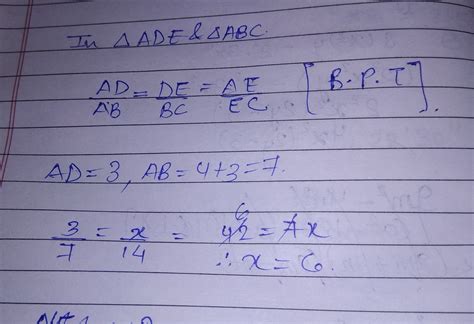 In △ADE & △ABC.
AD/AB = DE/BC = AE/EC [B.P.T].
AD = 3, AB = 4+3 = 7.
3/7 = x/14 = 42 = 7x 6
∴ x = 6.